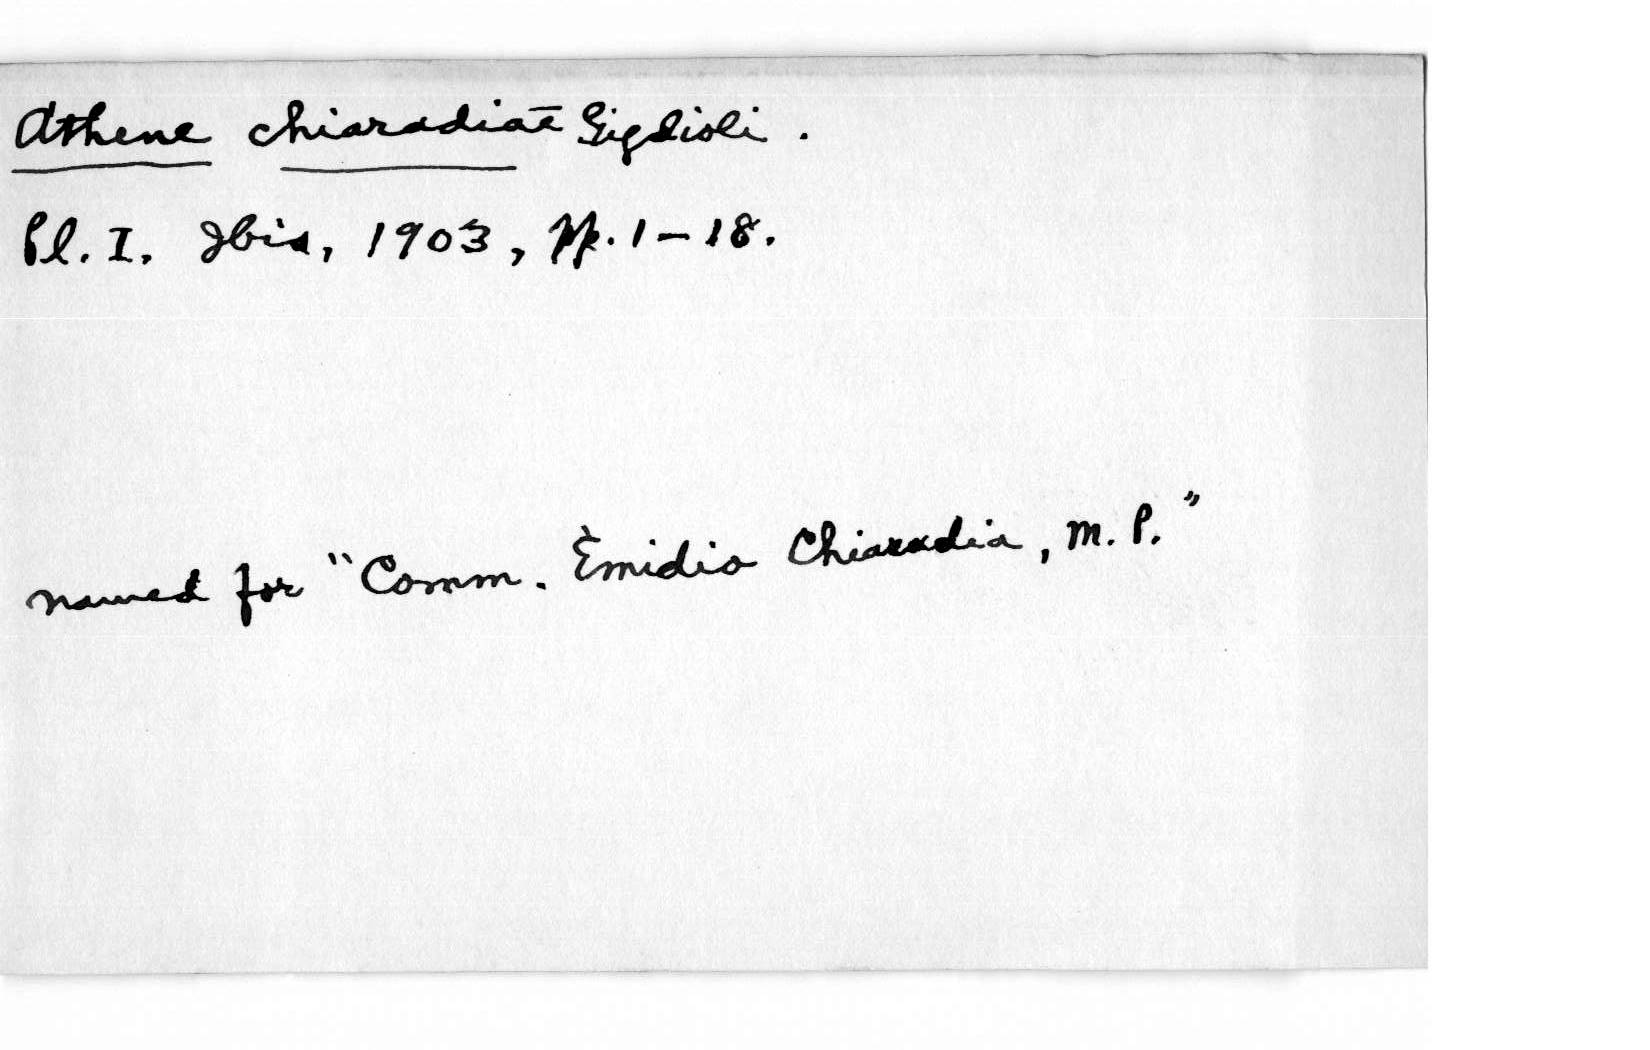 Athene chiaradiae Giglioli.
Pl. I. Ibis, 1903, pp. 1-18.
named for "Comm. Emidio Chiaradia, M. P."